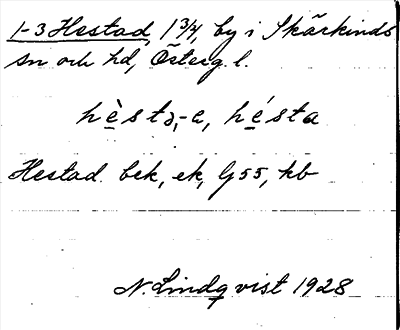 1-3 Hestad, 1 3/4, by i Skärkinds
sn och hd, Österg. l.
hèstə, -a, hésta
Hestad. bek, ek, G 55, kb
N. Lindqvist 1928